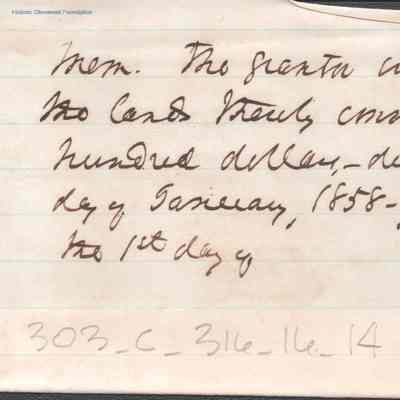 Historic Cherokee Foundation
Mem. The grantor
the lands thereby conv
hundred dollars, - du
day of January, 1858 -,
the 1st day of
303-C-316-16-14